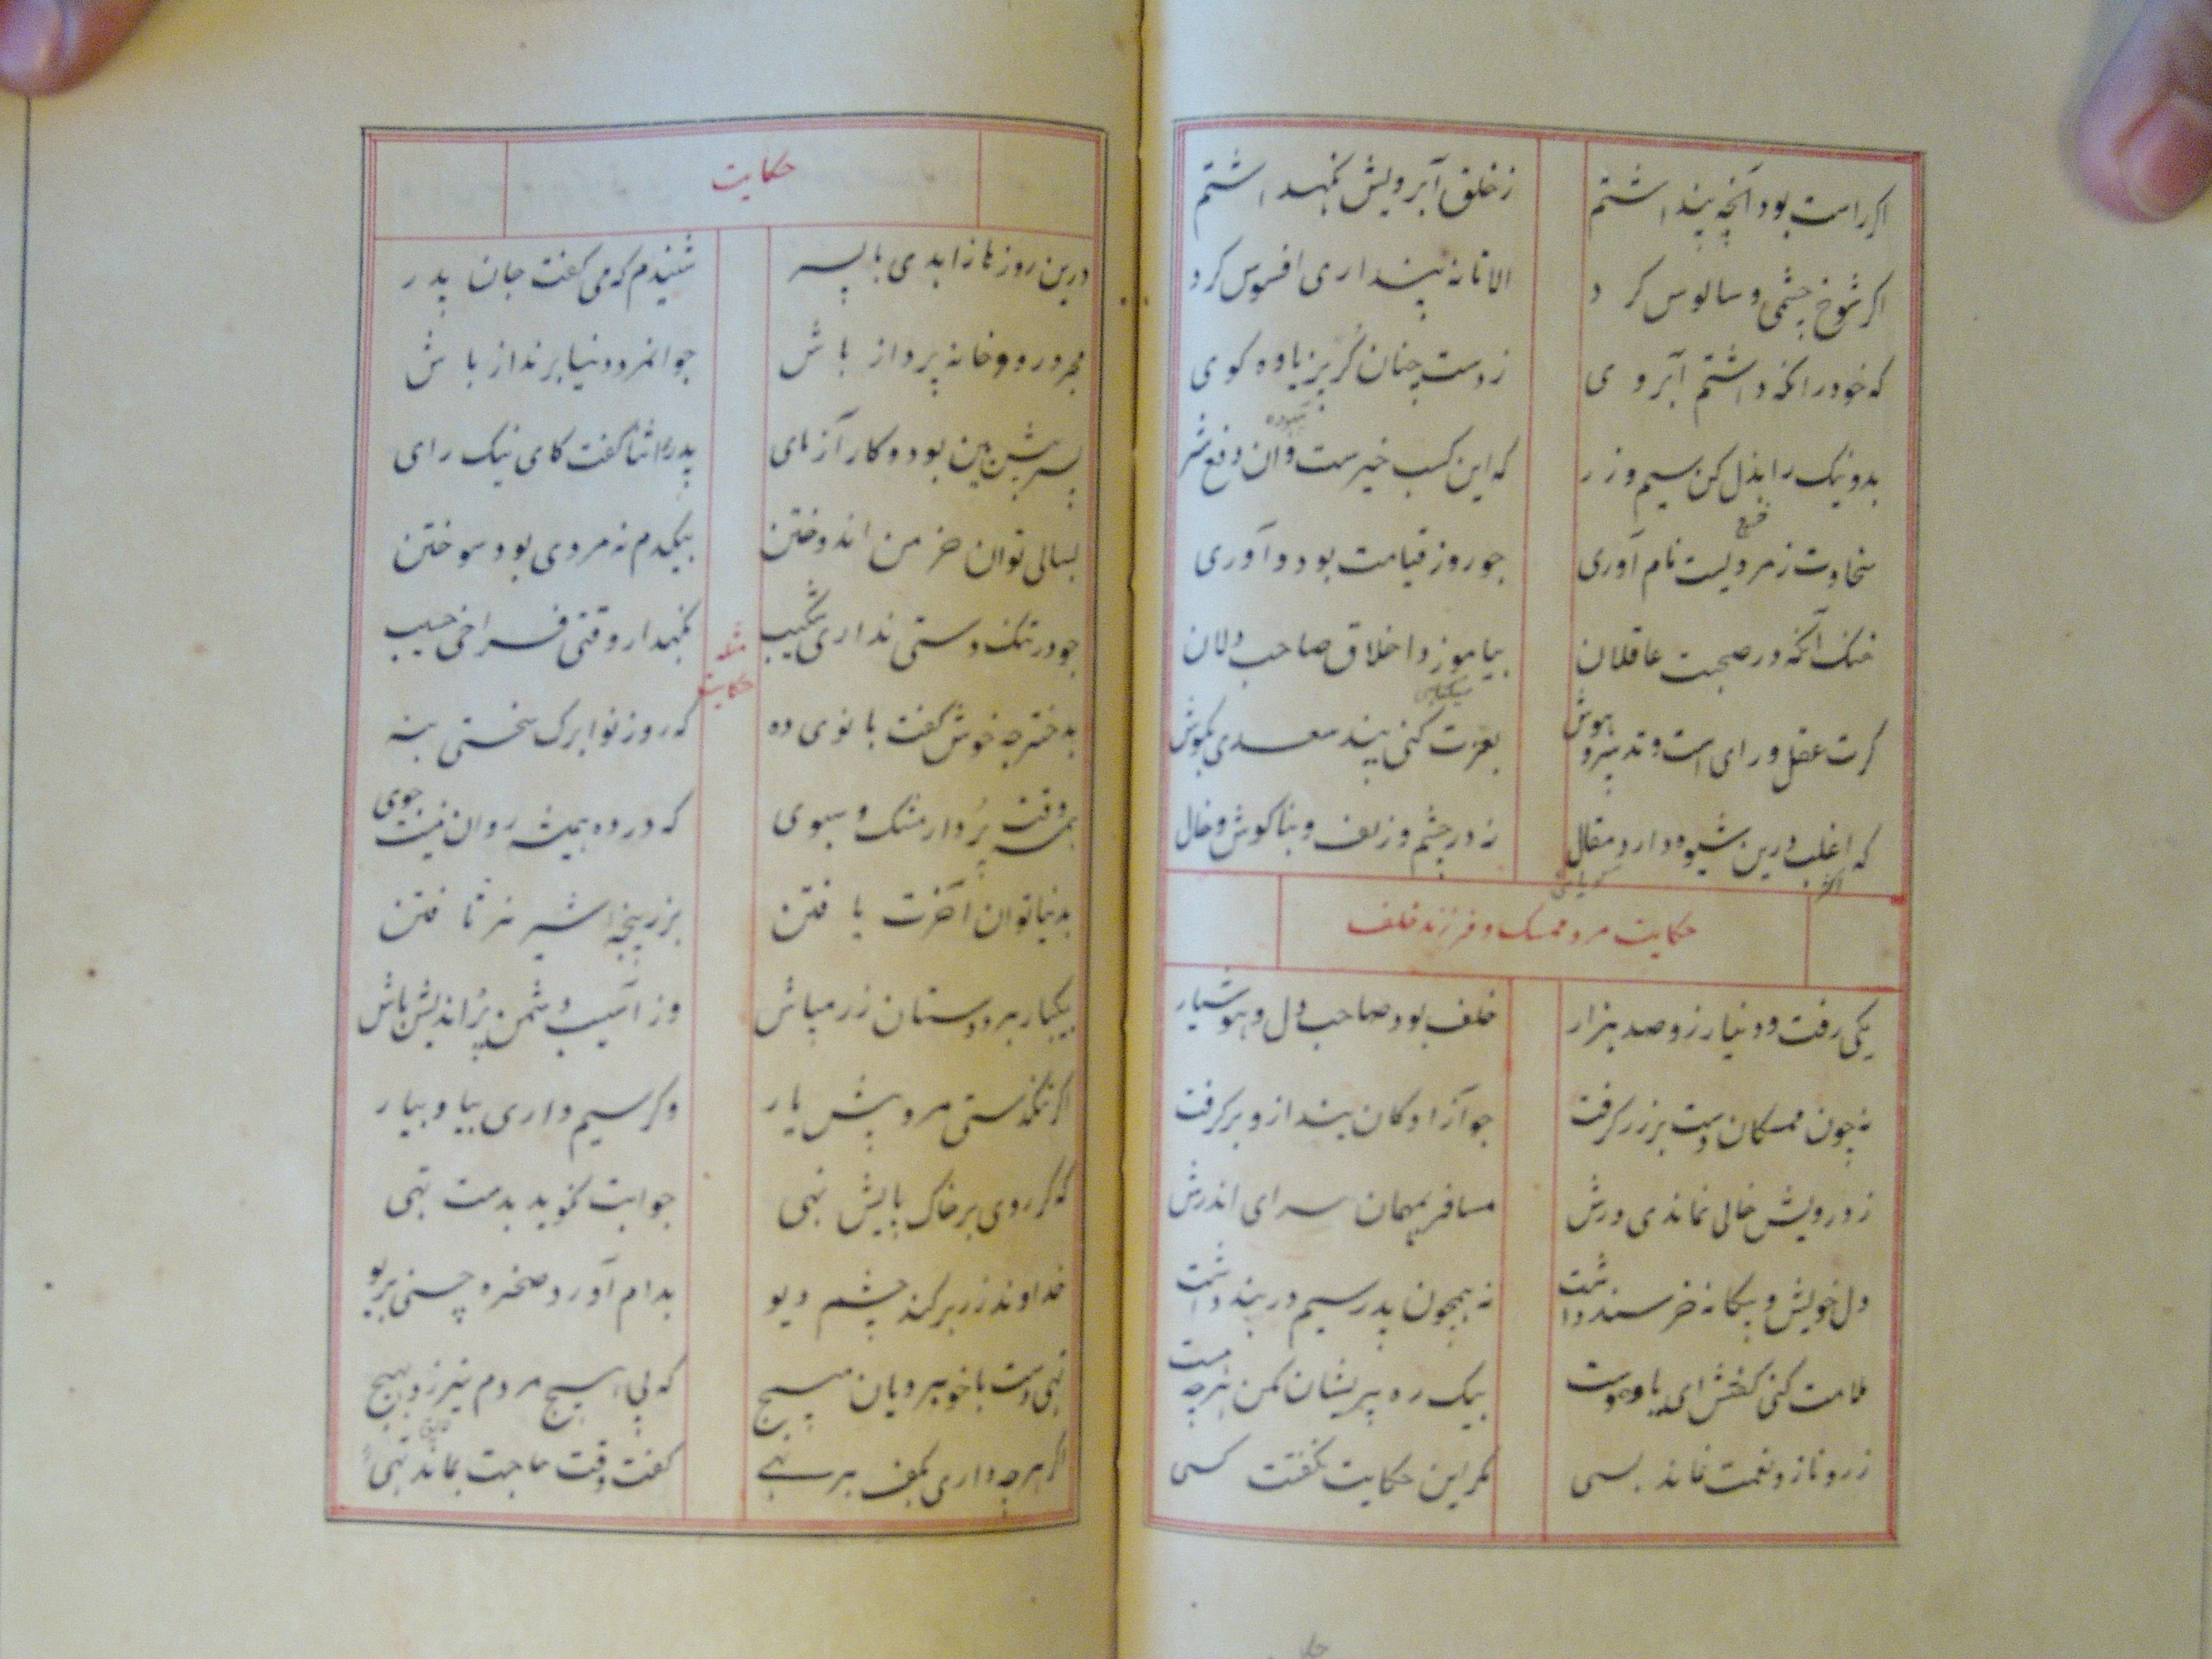 اکر راست بود آنچه پنداشتم   ز خلق آبرویش نکهداشتم
اکر شوخ چشمی و سالوس کرد   الا تا نه پنداری افسوس کرد
که خود را نکه داشتم آبروی   ز دست چنان کُربز یاوه کوی
بد و نیک را بذل کن سیم و زر   که این کسب خیرست و آن دفع شر
بیهوده
سخاوت ز مردیست نام آوری   جو روز قیامت بود داوری
خنک آنکه در صحبت عاقلان   بیاموزد اخلاق صاحب دلان
کرت عقل و رای است و تدبیر و هوش   بعزت کنی پند سعدی بکوش
که اغلب درین شیوه دارد مقال   نه در چشم و زلف و بناکوش و خال
اکثر
حکایت مرد ممسک و فرزند خلف
یکی رفت و دنیا ازو صد هزار   خلف بود صاحب دل و هوشیار
نه چون ممسکان دست بر زر کرفت   جو آزادکان بند ازو بر کرفت
ز درویش خالی نماندی درش   مسافر بمهمان سرای اندرش
دل خویش و بیکانه خرسند داشت   نه همچون پدر سیم در بند داشت
ملامت کنی کفتش ای باد دست   بیک ره پریشان مکن هرچه هست
زر و ناز و نعمت نماند بسی   مکر این حکایت نکفتت کسی
حکایت
درین روزها زاهدی با پسر   شنیدم که می کفت جان پدر
مجرد رو و خانه پرداز باش   جوانمرد و دنیا برنداز باش
پسر پیش بین بود و کار آزمای   پدر را ثنا کفت کای نیک رای
بسالی توان خرمن اندوختن   بیکدم نه مردی بود سوختن
جو در تنک دستی نداری شکیب   نکهدار وقتی فراخی حسیب
مثله
حکایت
بدختر چه خوش کفت بانوی ده   که روز نوا برک سختی بنه
همه وقت پُر دار مشک و سبوی   که در ده همیشه روان نیست جوی
بدنیا توان آخرت یافتن   بزر پنجه شیر نر تافتن
بیکبار بر دوستان زر مپاش   وز آسیب دشمن پُر اندیش باش
اکر تنکدستی مرو پیش یار   وکر سیم داری بیا و بیار
که کر روی بر خاک پایش نهی   جوابت نکوید بدست تهی
خداوند زر بر کند چشم دیو   بدام آورد صخره جنی بریو
تهی دست با خوبرویان مپیچ   که بی هیچ مردم نیرزد بهیچ
اکر هرچه داری بکف بر نهی   کفت وقت حاجت بماند تهی